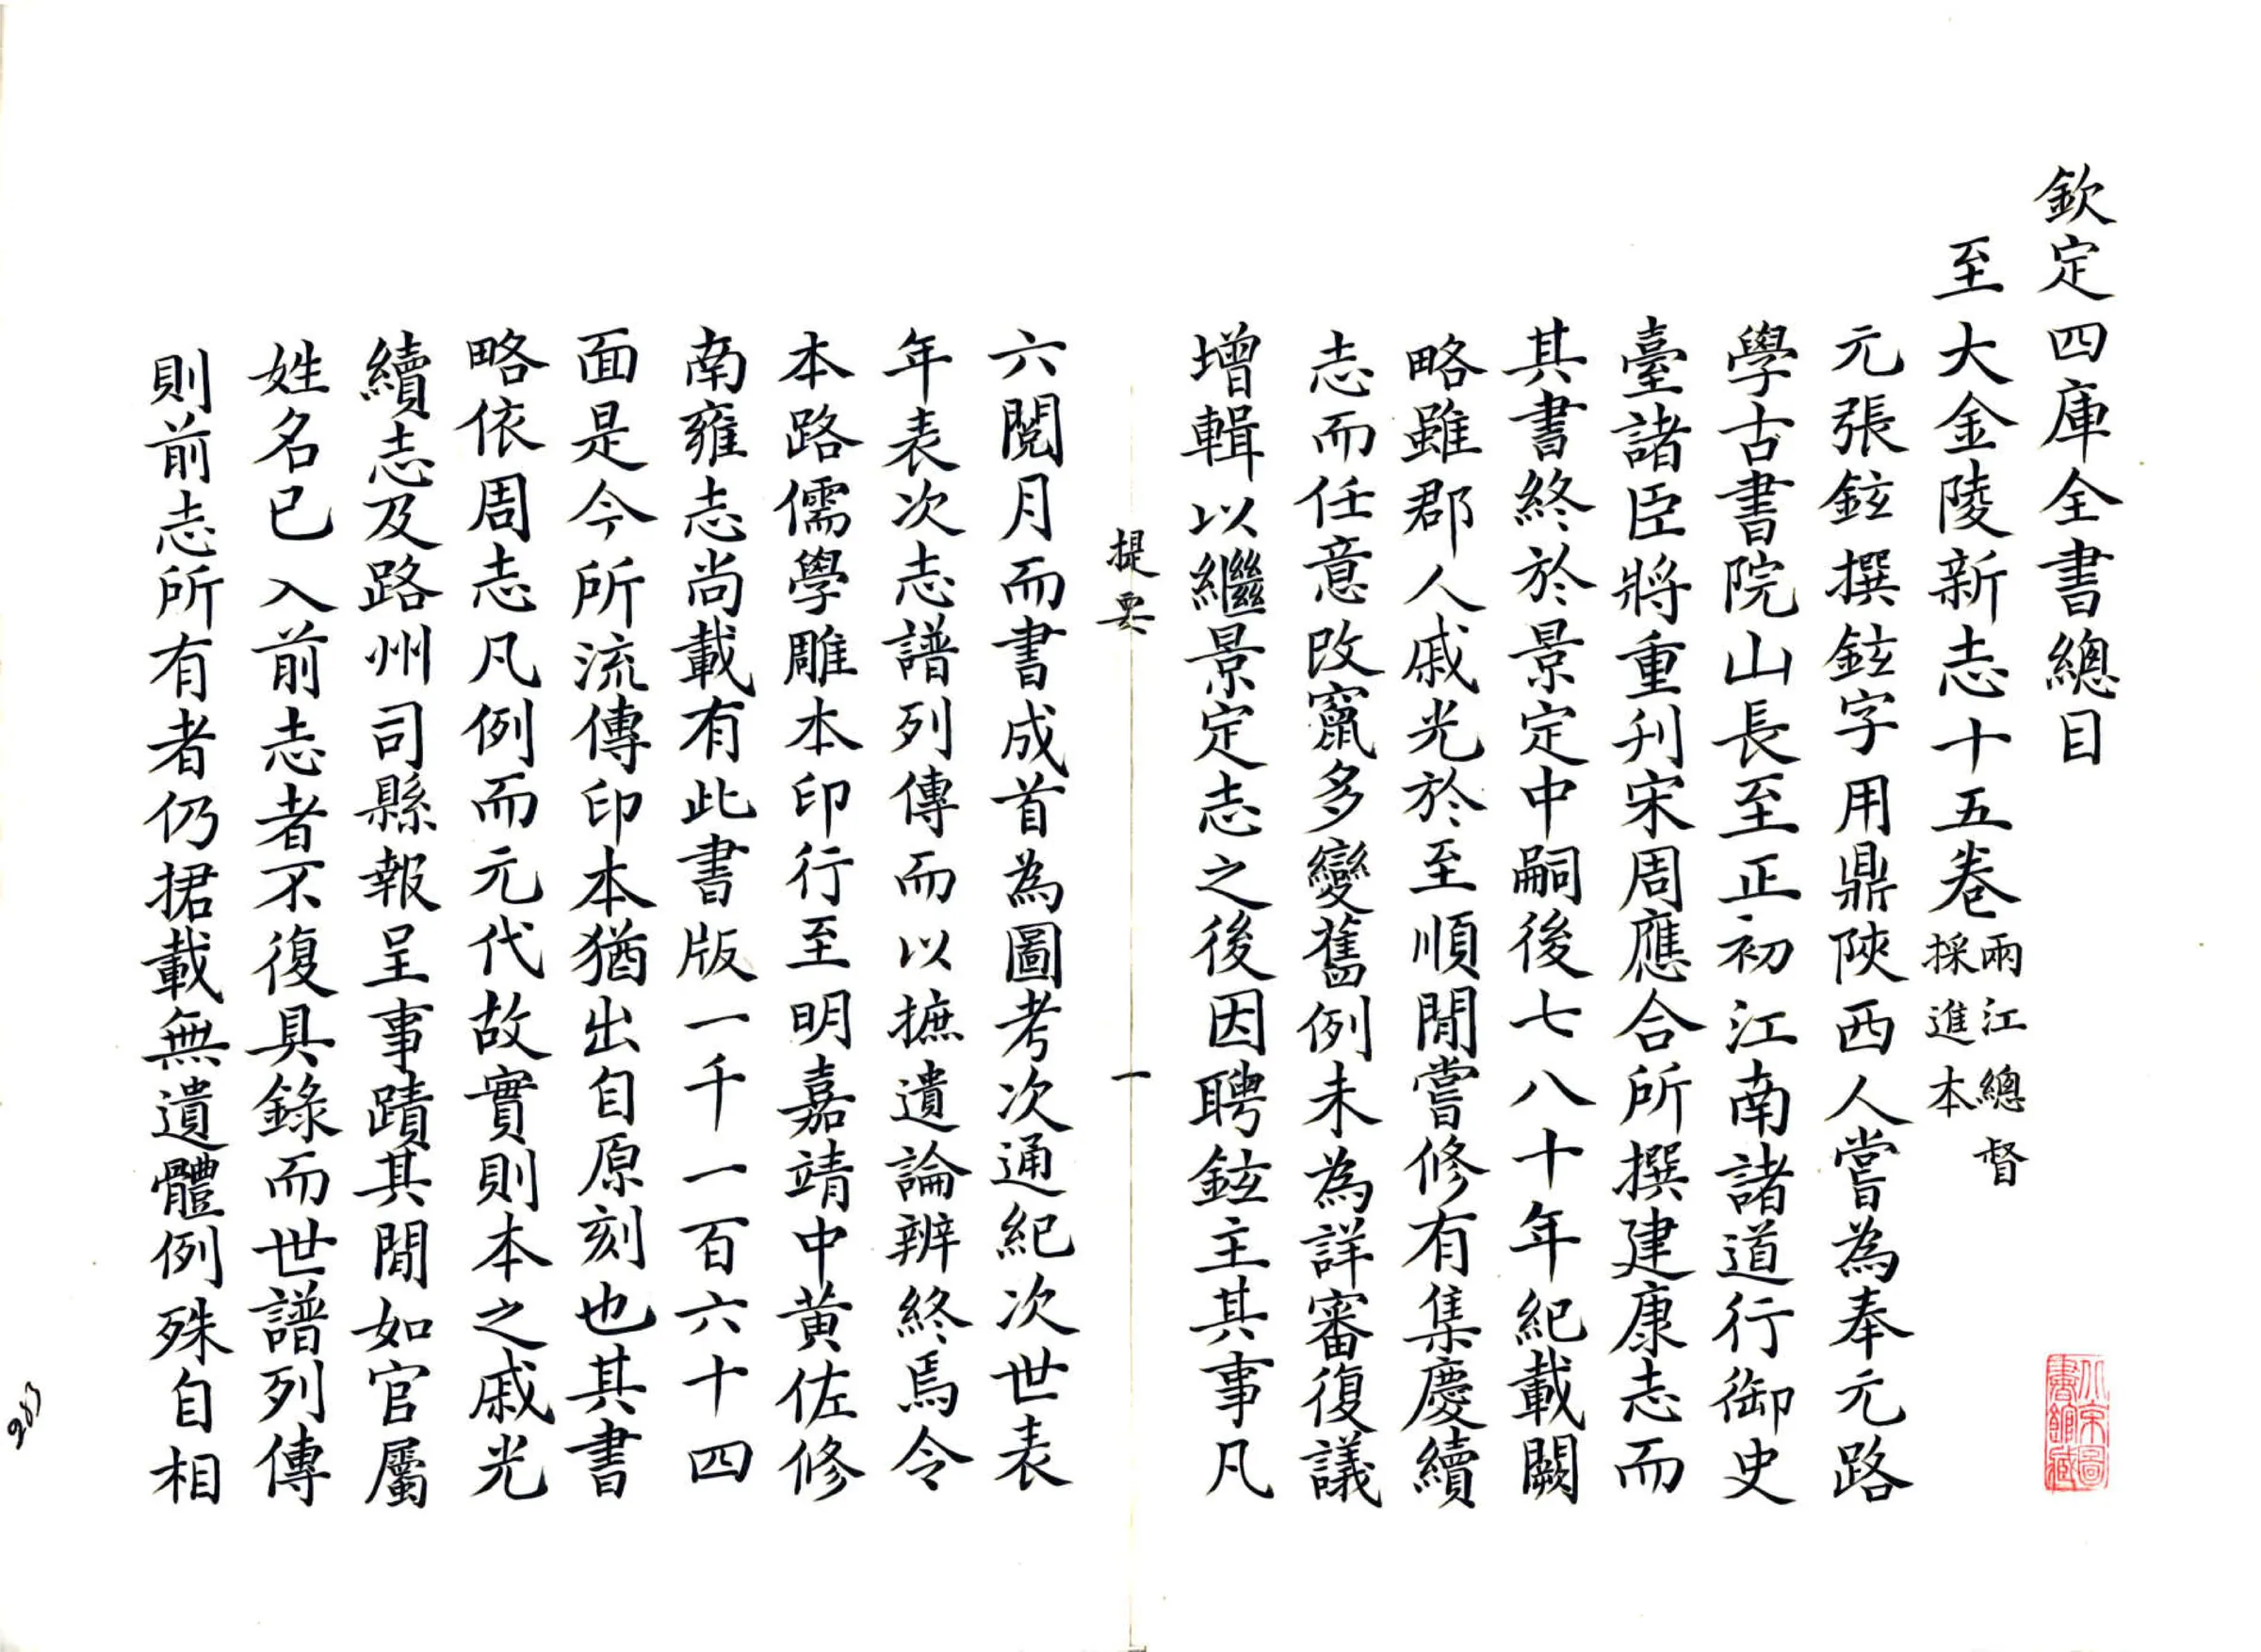 欽定四庫全書總目
至大金陵新志十五卷兩江總督採進本
元張鉉撰鉉字用鼎陝西人嘗為奉元路
學古書院山長至正初江南諸道行御史
臺諸臣將重刋宋周應合所撰建康志而
其書終於景定中嗣後七八十年紀載闕
略雖郡人戚光於至順閒嘗修有集慶續
志而任意改竄多變舊例未為詳審復議
增輯以繼景定志之後因聘鉉主其事凡
提要
一
六閱月而書成首為圖考次通紀次世表
年表次志譜列傳而以摭遺論辨終焉令
本路儒學雕本印行至明嘉靖中黃佐修
南雍志尚載有此書版一千一百六十四
面是今所流傳印本猶出自原刻也其書
略依周志凡例而元代故實則本之戚光
續志及路州司縣報呈事蹟其閒如官屬
姓名已入前志者不復具錄而世譜列傳
則前志所有者仍捃載無遺體例殊自相
北京圖書館藏